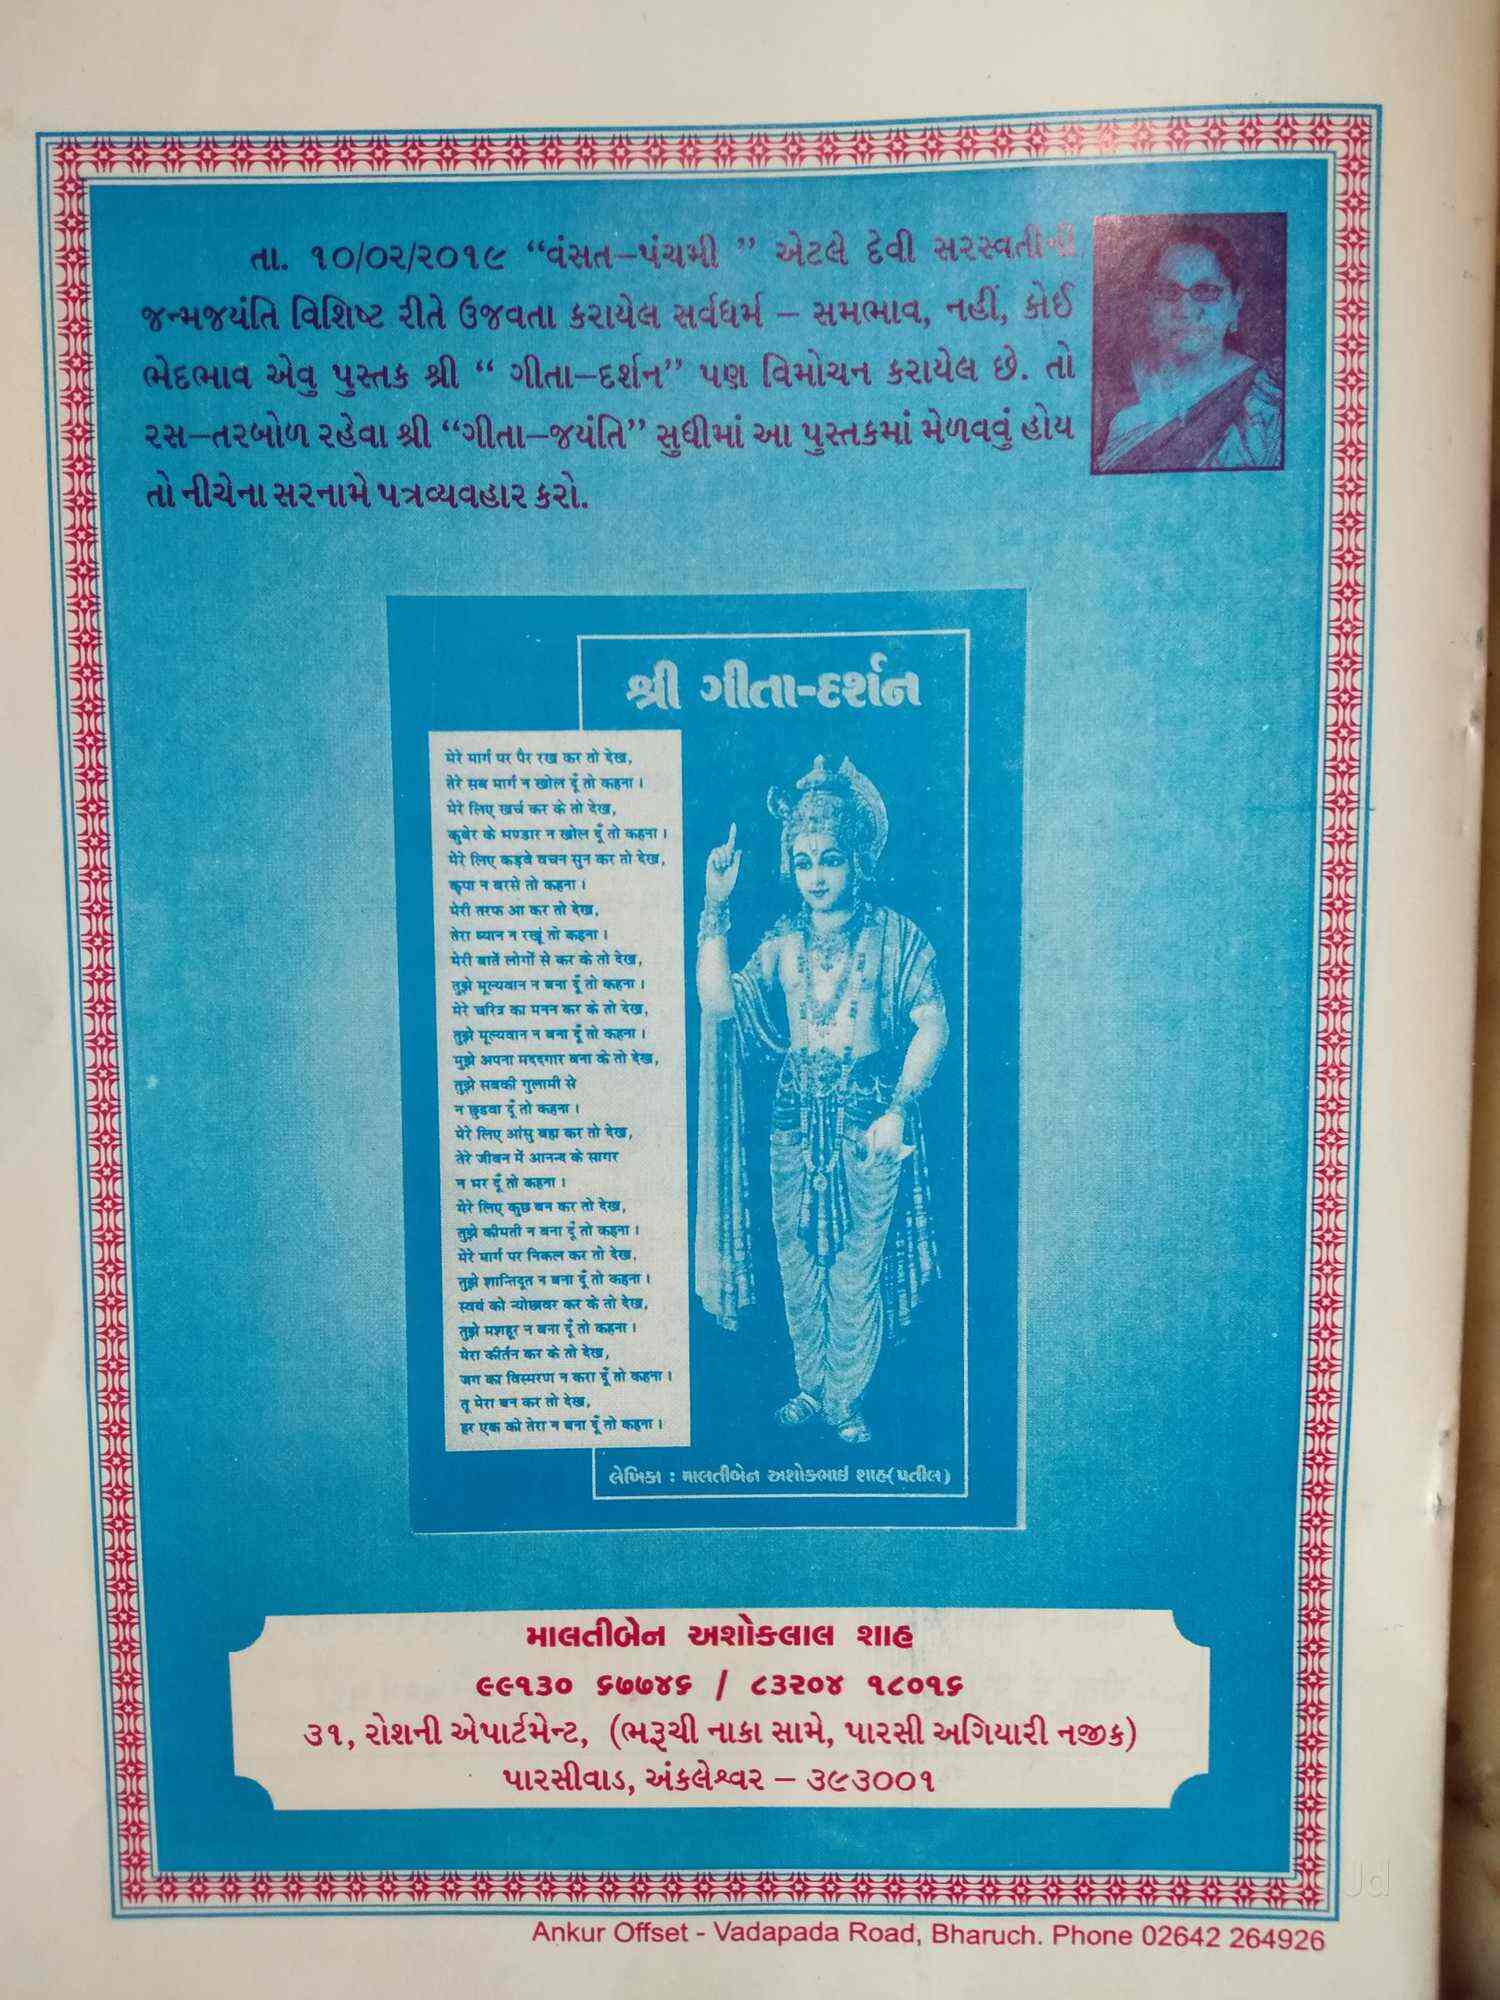 તા. ૧૦/૦૨/૨૦૧૯ “વંસત–પંચમી ” એટલે દેવી સરસ્વતીની
જન્મજયંતિ વિશિષ્ટ રીતે ઉજવતા કરાયેલ સર્વધર્મ – સમભાવ, નહીં, કોઈ
ભેદભાવ એવુ પુસ્તક શ્રી “ ગીતા–દર્શન” પણ વિમોચન કરાયેલ છે. તો
રસ–તરબોળ રહેવા શ્રી “ગીતા–જયંતિ” સુધીમાં આ પુસ્તકમાં મેળવવું હોય
તો નીચેના સરનામે પત્રવ્યવહાર કરો.
શ્રી ગીતા-દર્શન
मेरे मार्ग पर पैर रख कर तो देख,
तेरे सब मार्ग न खोल दूँ तो कहना ।
मेरे लिए खर्च कर के तो देख,
कुबेर के भण्डार न खोल दूँ तो कहना ।
मेरे लिए कड़वे वचन सुन कर तो देख,
कृपा न बरसे तो कहना ।
मेरी तरफ आ कर तो देख,
तेरा ध्यान न रखूं तो कहना ।
मेरी बातें लोगों से कर के तो देख,
तुझे मूल्यवान न बना दूँ तो कहना ।
मेरे चरित्र का मनन कर के तो देख,
तुझे मूल्यवान न बना दूँ तो कहना ।
मुझे अपना मददगार बना के तो देख,
तुझे सबकी गुलामी से
न छुडवा दूँ तो कहना ।
मेरे लिए आंसु बहा कर तो देख,
तेरे जीवन में आनन्द के सागर
न भर दूँ तो कहना ।
मेरे लिए कुछ बन कर तो देख,
तुझे कीमती न बना दूँ तो कहना ।
मेरे मार्ग पर निकल कर तो देख,
तुझे शान्तिदूत न बना दूँ तो कहना ।
स्वयं को न्योछावर कर के तो देख,
तुझे मशहूर न बना दूँ तो कहना ।
मेरा कीर्तन कर के तो देख,
जग का विस्मरण न करा दूँ तो कहना ।
तू मेरा बन कर तो देख,
हर एक को तेरा न बना दूँ तो कहना ।
લેખિકા : માલતીબેન અશોકભાઇ શાહ(પતીલ)
માલતીબેન અશોકલાલ શાહ
૯૯૧૩૦ ૬૭૭૪૬ / ૮૩૨૦૪ ૧૮૦૧૬
૩૧, રોશની એપાર્ટમેન્ટ, (ભરૂચી નાકા સામે, પારસી અગિયારી નજીક)
પારસીવાડ, અંકલેશ્વર – ૩૯૩૦૦૧
Jd
Ankur Offset - Vadapada Road, Bharuch. Phone 02642 264926